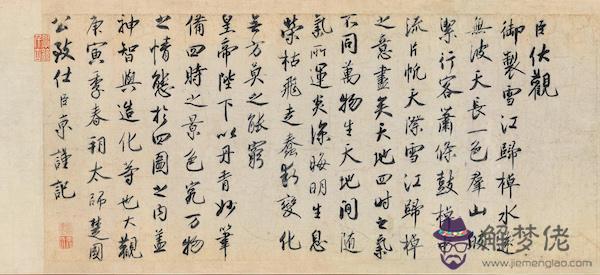 臣伏觀
御製雪江歸棹水遠
無波天長一色羣山皎
潔行客蕭條鼓棹中
流片帆天際雪江歸棹
之意盡矣天地四時之氣
不同萬物生天地間隨
氣所運炎涼晦明生息
榮枯飛走蠢動變化
無方莫之能窮
皇帝陛下以丹青妙筆
備四時之景色究萬物
之情態於四圖之內蓋
神智與造化等也大觀
庚寅季春朔太師楚國
公致仕臣京謹記
解夢佬
http://jiemenglao.com/